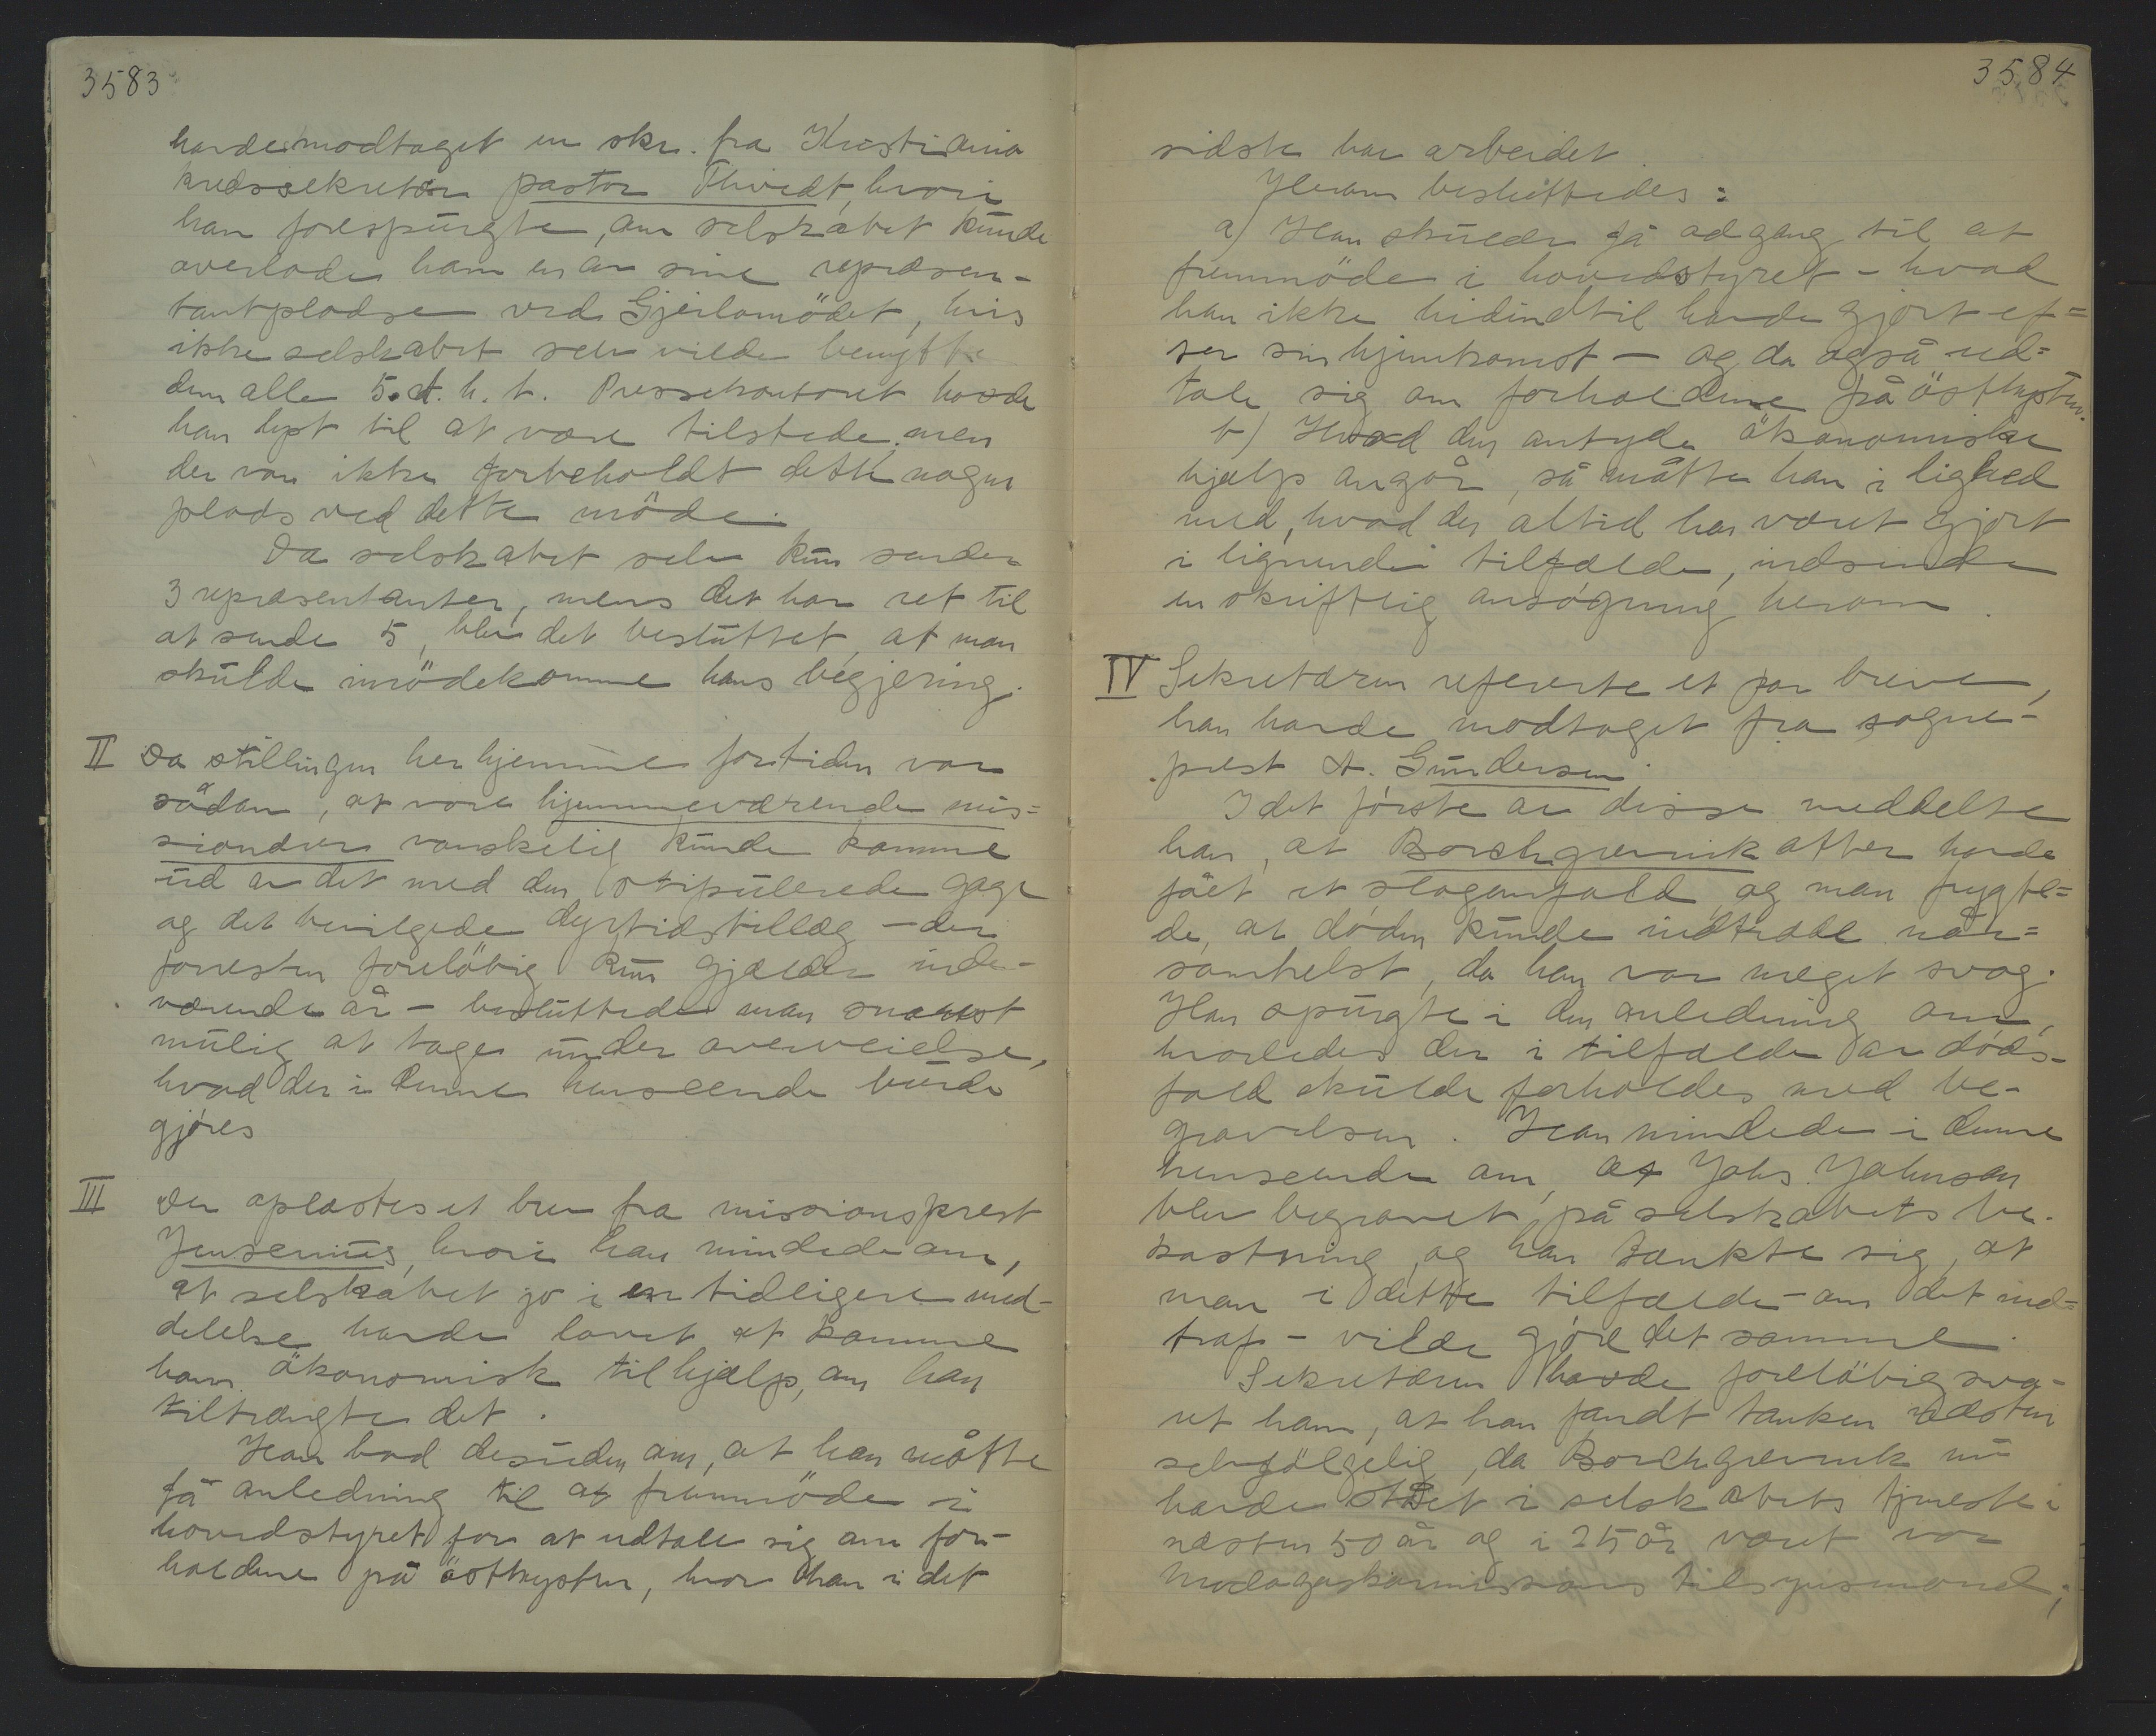 3583
havde modtaget en skr. fra Kristiania
kredssekretær pastor Thvedt, hvori
han forespurgte, om selskabet kunde
overlade ham en av sine repræsen-
tantpladse ved Gjeilomödet, hvis
ikke selskabet selv vilde benytte
dem alle 5. d. h. t. Pressekontoret havde
han lyst til at være tilstede. men
der var ikke forbeholdt dette nogen
plads ved dette möde.
Da selskabet selv kun sender
3 repræsentanter, mens det har ret til
at sende 5, blev det besluttet, at man
skulde imödekomme hans begjering.
II Da stillingen her hjemme fortiden var
sådan, at vore hjemmeværende mis=
sionærer vanskelig kunde komme
ud av det med den stipulerede gage
og det bevilgede dyrtidstillæg - der
forresten foreløbig kun gjælder inde-
værende år - besluttede man snarest
mulig at tage under overveielse,
hvad der i denne henseende burde
gjøres
III Der oplæstes et brev fra missionsprest
Jensenius, hvori han mindede om,
at selskabet jo i en tidligere med-
delelse havde lovet at komme
ham ökonomisk til hjælp, om han
tiltrængte det.
Han bad desuden om, at han måtte
få anledning til at fremmöde i
hovedstyret for at udtale sig om for-
holdene på östkysten, hvor han i det
3584
sidste har arbeidet.
Herom besluttedes:
a) Han skulde få adgang til at
fremmöde i hovedstyret - hvad
han ikke hidindtil havde gjort ef=
ter sin hjemkomst - og da også ud=
tale sig om forholdene på östkysten.
b) Hvad den antydede ökonomiske
hjælp angår, så måtte han i lighed
med, hvad der altid har været gjort
i lignende tilfælde, indsende
en skriftlig ansögning herom.
IV Sekretæren refererte et par breve,
han havde modtaget fra sogne-
prest A. Gundersen.
I det förste av disse meddelte
han, at Borchgrevink atter havde
fået et slaganfald, og man frygte=
de, at döden kunde indtræde når=
somhelst, da han var meget svag.
Han spurgte i den anledning om,
hvorledes der i tilfælde av döds-
fald skulde forholdes med be-
gravelsen. Han mindede i denne
henseende om, at Johs. Johnson
blev begravet på selskabets be-
kostning, og han tænkte sig, at
man i dette tilfælde - om det ind=
traf - vilde gjöre det samme.
Sekretæren havde foreløbig sva-
ret ham, at han fandt tanken næsten
selvfölgelig, da Borchgrevink nu
havde stået i selskabets tjeneste i
næsten 50 år og i 25 år været vor
Madagaskarmissions tilsynsmand;